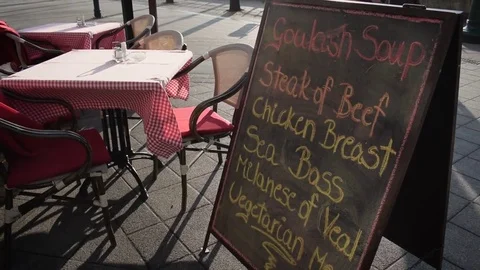 Goulash Soup
Steak of Beef
Chicken Breast
Sea Bass
Milanese of Veal
Vegetarian